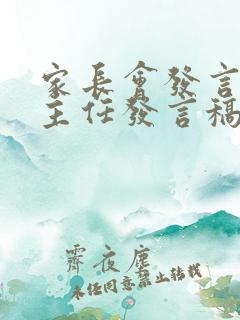 家長會發言
主任發言稿
霽夜塵
未经同意禁止转载